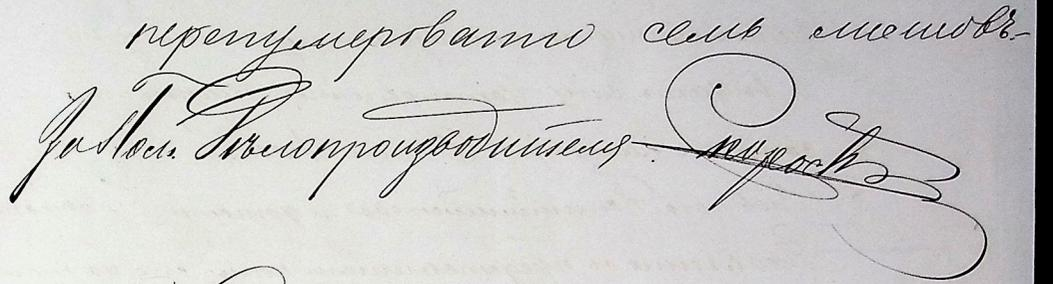 перенумеровано семь листовъ.-
За Пом. Дѣлопроизводителя